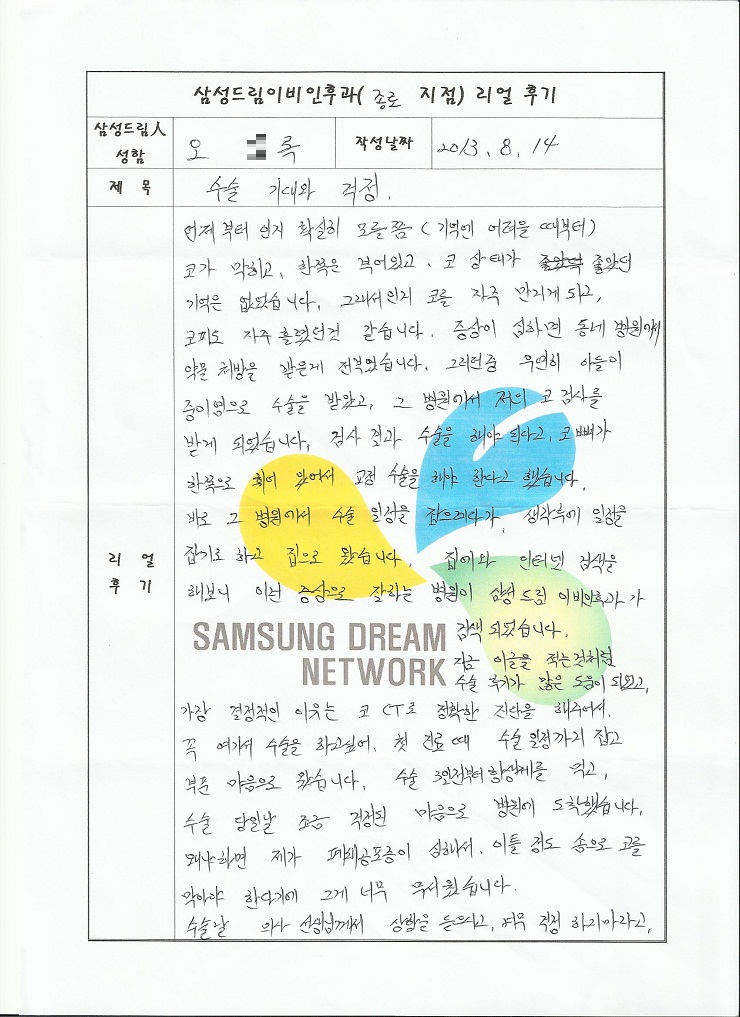 삼성드림이비인후과( 종로 지점) 리얼 후기
삼성드림人
성함
오 록
작성날짜
2013. 8. 14
제 목
수술 기대와 걱정.
언제부터 인지 확실히 모를쯤 (기억엔 어려을 때부터)
코가 막히고, 한쪽은 부어있고, 코 상태가 좋았던
기억은 없었습니다. 그래서인지 코를 자주 만지게 되고,
코피도 자주 흘렸던것 같습니다. 증상이 심하면 동네 병원에서
약물 처방을 받은게 전부였습니다. 그러던중 우연히 아들이
중이염으로 수술을 받았고, 그 병원에서 저의 코 검사를
받게 되었습니다. 검사 결과 수술을 해야 된다고, 코뼈가
한쪽으로 휘어 있어서 교정 수술을 해야 한다고 했습니다.
바로 그 병원에서 수술 일정을 잡으려다가, 생각후에 일정을
잡기로 하고 집으로 왔습니다. 집에와 인터넷 검색을
해보니 이런 증상으로 잘하는 병원이 삼성드림 이비인후과가
리 얼
후 기
SAMSUNG DREAM
NETWORK
검색 되었습니다.
지금 이글을 적는것처럼
수술 후기가 많은 도움이 되었고,
가장 결정적인 이유는 코 CT로 정확한 진단을 해주어서.
꼭 여기서 수술을 하고싶어, 첫 진료 때 수술 일정까지 잡고
부푼 마음으로 왔습니다. 수술 3일전부터 항생제를 먹고,
수술 당일날 조금 걱정된 마음으로 병원에 도착했습니다.
왜냐하면 제가 폐쇄공포증이 심해서. 이틀 정도 솜으로 코를
막아야 한다기에 그게 너무 무서웠습니다.
수술날 의사 선생님께서 상황을 들으시고, 너무 걱정 하지마라고,